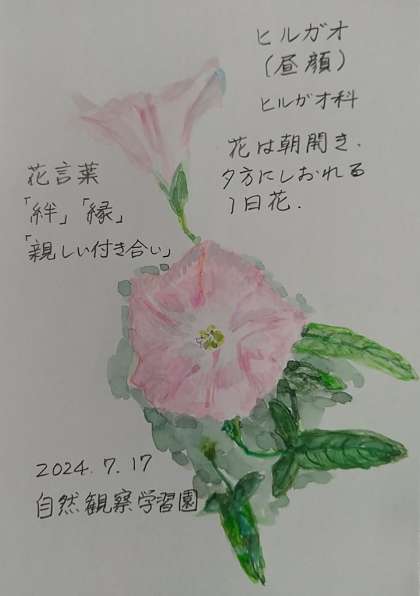 ヒルガオ
(昼顔)
ヒルガオ科
花は朝開き、
夕方にしおれる
1日花.
花言葉
「絆」「縁」
「親しい付き合い」
2024.7.17
自然観察学習園